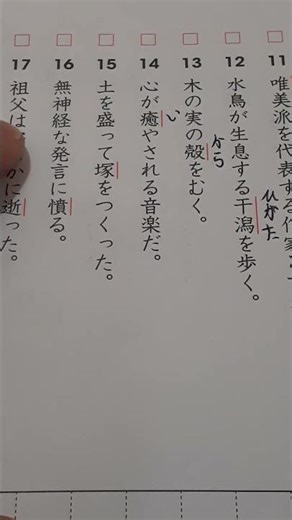 11 唯美派を代表する作家
12 水鳥が生息する干潟を歩く。
ひがた
13 木の実の殻をむく。
から
14 心が癒やされる音楽だ。
い
15 土を盛って塚をつくった。
16 無神経な発言に憤る。
17 祖父は かに逝った。